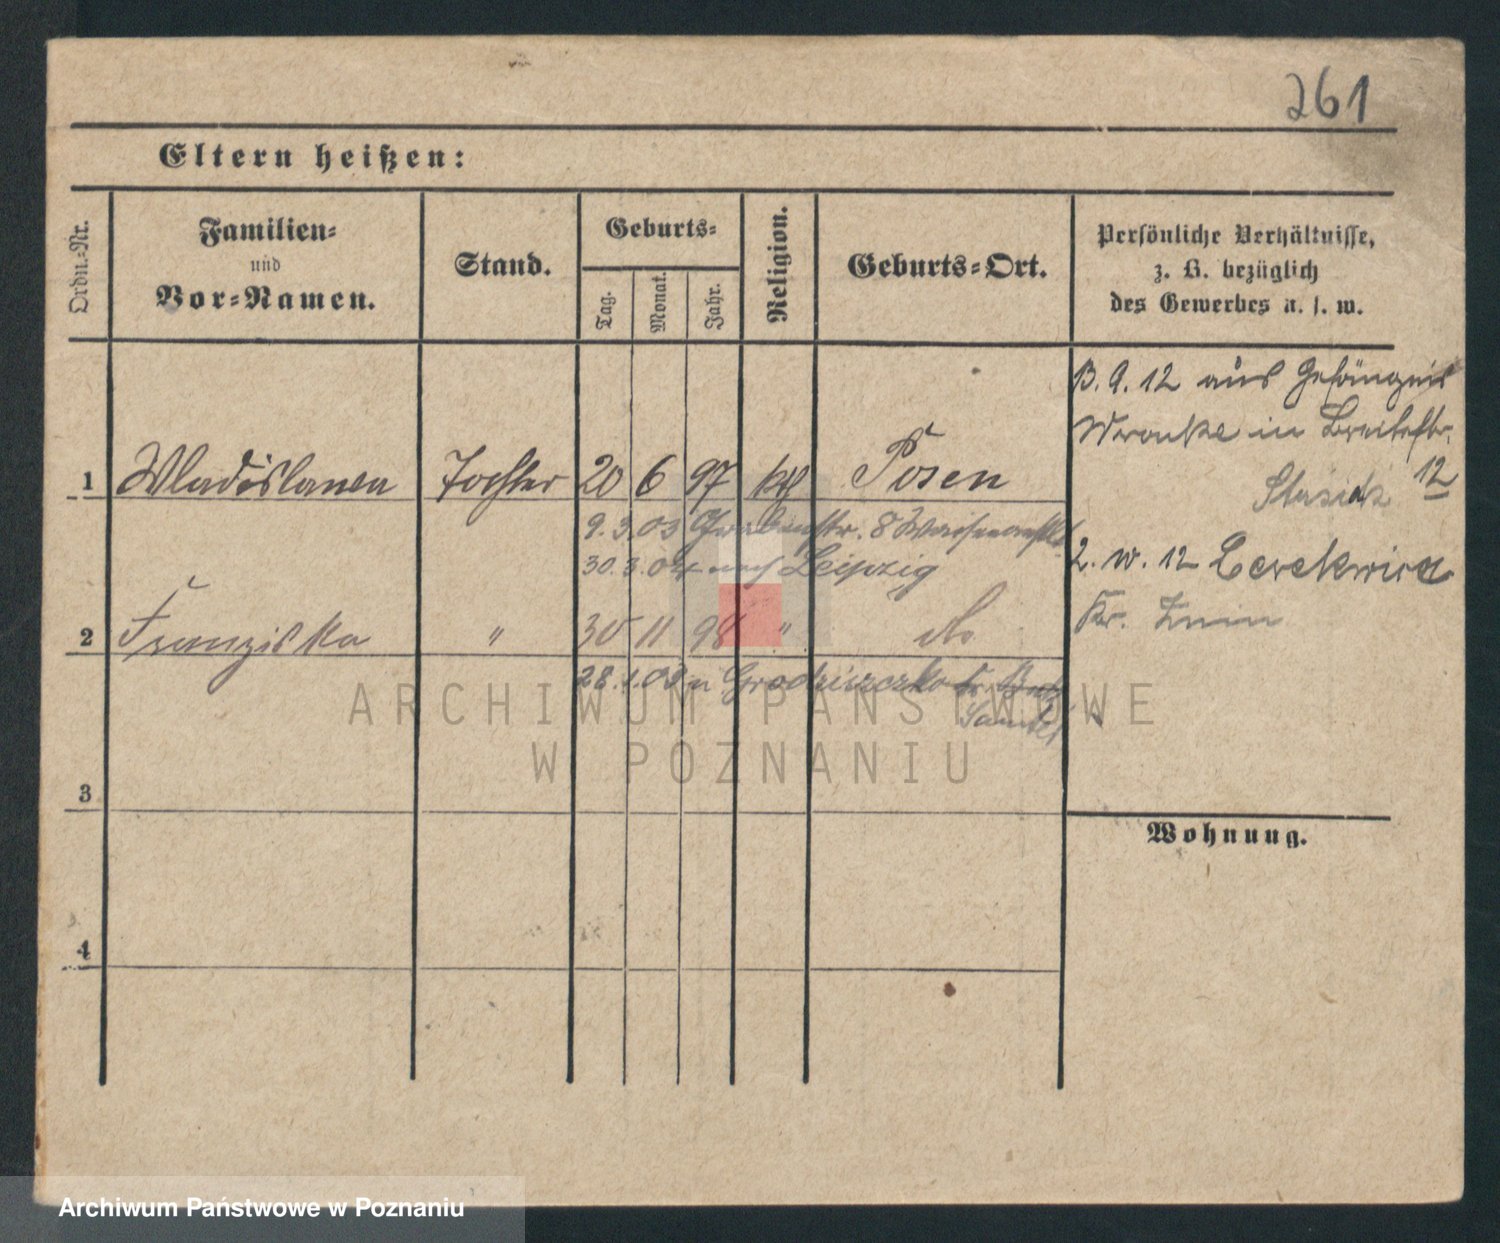 261
Eltern heißen:
Ordn.-Nr.
Familien-
und
Vor-Namen.
Stand.
Geburts-
Tag.
Monat.
Jahr.
Religion.
Geburts-Ort.
Persönliche Verhältnisse,
z. B. bezüglich
des Gewerbes u. s. w.
B. 9. 12 aus Gefängnis
Wronke in Breitestr.
12
Stasiak
1 Wladislawa Tochter 20 6 97 kth Posen
9. 3. 03 Grabenstr. 8 Waisenanstalt
30. 3. 04 nach Leipzig
2. 10. 12 Cerekwica
Kr. Znin
2 Franziska " 30 11 98 " do
28. 1. 03 n Grodziszczko
Samter
ARCHIWUM PAŃSTWOWE
W POZNANIU
3
Wohnung.
4
Archiwum Państwowe w Poznaniu